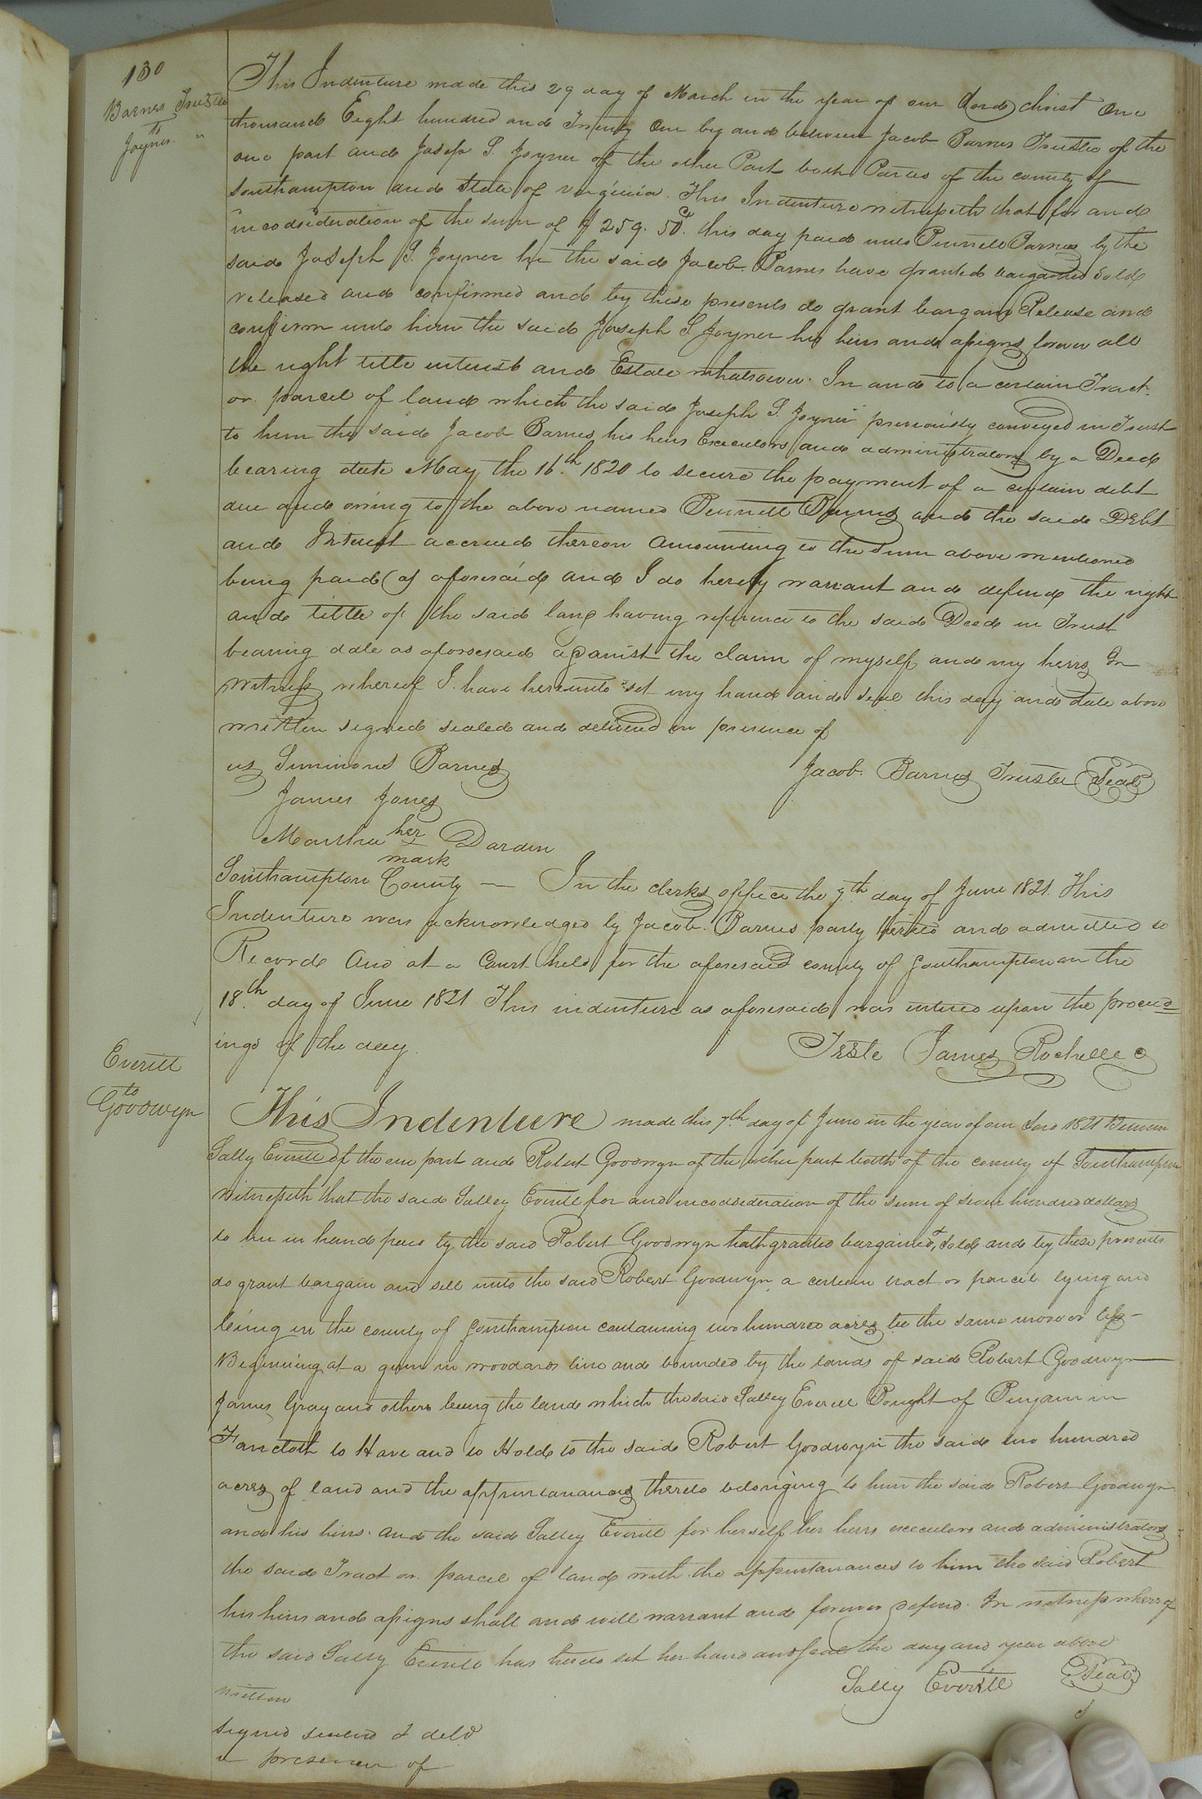 130
Barnes Trustee
to
Joyner
This Indenture made this 29 day of March in the year of our Lord christ One
thousand Eight hundred and Twenty One by and between Jacob Barnes Trustee of the
one part and Joseph S. Joyner of the other Part both Parties of the county of
Southampton and State of virginia. This Indenture witnesseth that for and
in cosideration of the sum of $259.50 cts this day paid unto Pennell Barnes by the
said Joseph S. Joyner he the said Jacob Barnes have granted bargained Sold
released and confirmed and by these presents do grant bargain Release and
confirm unto him the said Joseph S Joyner his heirs and assigns forever all
the right title interest and Estate whatsoever. In and to a certain Tract
or parcel of land which the said Joseph S. Joyner previously conveyed in Trust
to him the said Jacob Barnes his heirs Executors and administrators by a Deed
bearing date May the 16th 1820 to secure the payment of a certain debt
due and owing to the above named Pennell Barnes and the said Debt
and Interest accrued thereon amounting to the sum above mentioned
being paid as aforesaid and I do hereby warrant and defend the right
and title of the said land having reference to the said Deed in Trust
bearing date as aforesaid against the claim of myself and my heirs In
Witness whereof I have hereunto set my hand and seal this day and date above
written signed sealed and delivered in presence of
us Simmons Barnes
Jacob Barnes Trustee Seal
James Jones
Martha her Darden
mark
Southampton County — In the clerks office the 7th day of June 1821. This
Indenture was acknowledged by Jacob Barnes party hereto and admitted to
Record And at a Court held for the aforesaid county of Southampton on the
18th day of June 1821 This indenture as aforesaid was entered upon the proceed
ings of the day.
Teste James Rochelle c
Everitt
to
Goodwyn
This Indenture made this 7th day of June in the year of our Lord 1821 Between
Sally Everitt of the one part and Robert Goodwyn of the other part both of the county of Southampton
Witnesseth that the said Salley Everitt for and in cosideration of the sum of four hundred dollars
to her in hand paid by the said Robert Goodwyn hath granted bargained, & sold and by these presents
do grant bargain and sell unto the said Robert Goodwyn a certain tract or parcel lying and
being in the county of Southampton containing two hundred acres be the same more or less -
Beginning at a gum in woodards line and bounded by the lands of said Robert Goodwyn
James Gray and others being the land which the said Salley Everitt Bought of Benjamin
Faircloth to Have and to Hold to the said Robert Goodwyn the said two hundred
acres of land and the appurtanances thereto belonging to him the said Robert Goodwyn
and his heirs. And the said Salley Everitt for herself her heirs executors and administrators
the said Tract or parcel of land with the appurtanances to him the said Robert
his heirs and assigns shall and will warrant and forever defend. In witness whereof
the said Sally Everitt has hereto set her hand and seal the day and year above
written
Sally Everitt Seal
Signed sealed & deld
in presence of